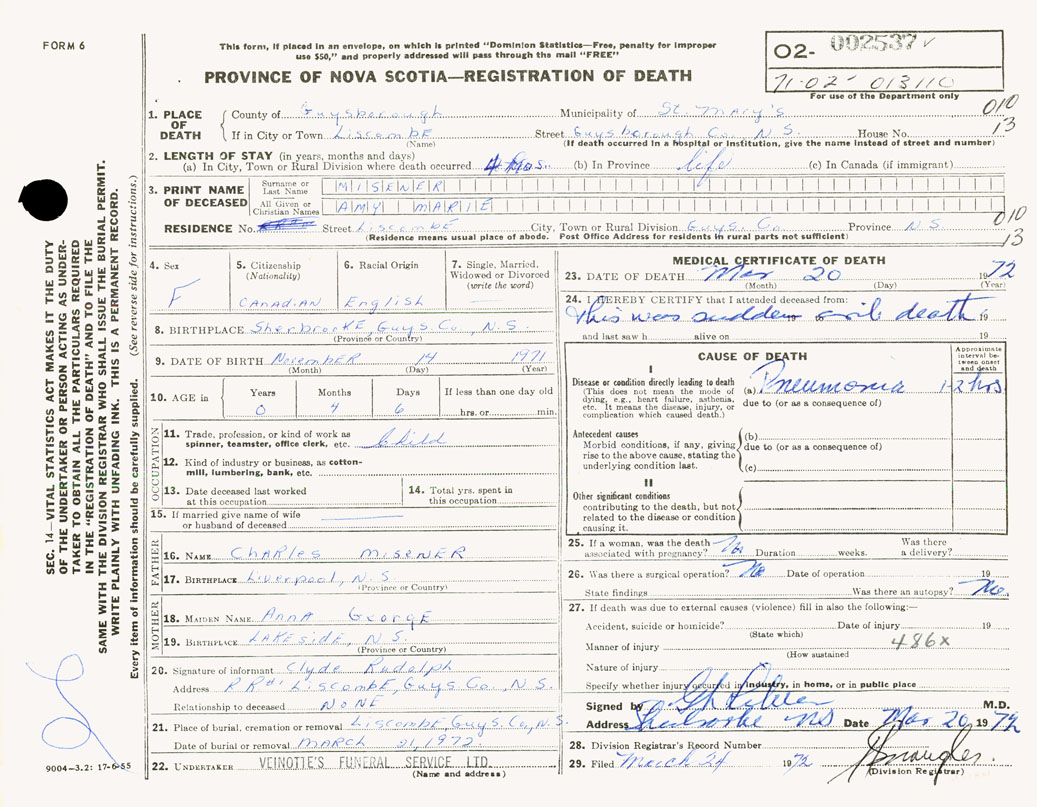 FORM 6
This form, if placed in an envelope, on which is printed "Dominion Statistics—Free, penalty for improper
use $50," and properly addressed will pass through the mail "FREE"
PROVINCE OF NOVA SCOTIA—REGISTRATION OF DEATH
O2- 002537
71-02- 013110
For use of the Department only
1. PLACE OF DEATH
County of Guysborough Municipality of St. Mary's
010
13
If in City or Town Liscombe Street Guysborough Co. N.S. House No.
(Name) (If death occurred in a hospital or institution, give the name instead of street and number)
2. LENGTH OF STAY (in years, months and days)
(a) In City, Town or Rural Division where death occurred 4 mos. (b) In Province life (c) In Canada (if immigrant)
3. PRINT NAME OF DECEASED
Surname or Last Name MISENER
All Given or Christian Names AMY MARIE
RESIDENCE No. Street LiscombE City, Town or Rural Division Guys. Co. Province N S
010
13
(Residence means usual place of abode. Post Office Address for residents in rural parts not sufficient)
4. Sex F
5. Citizenship (Nationality) CANADIAN
6. Racial Origin English
7. Single, Married, Widowed or Divorced (write the word)
8. BIRTHPLACE SherbrookE, Guys. Co., N.S.
(Province or Country)
9. DATE OF BIRTH NovembER 14 1971
(Month) (Day) (Year)
10. AGE in Years 0 Months 4 Days 6 If less than one day old hrs. or min.
OCCUPATION
11. Trade, profession, or kind of work as spinner, teamster, office clerk, etc. Child
12. Kind of industry or business, as cotton-mill, lumbering, bank, etc.
13. Date deceased last worked at this occupation
14. Total yrs. spent in this occupation
15. If married give name of wife or husband of deceased
FATHER
16. NAME CHARles MISENER
17. BIRTHPLACE Liverpool, N.S.
(Province or Country)
MOTHER
18. MAIDEN NAME ANNA GeorgE
19. BIRTHPLACE LAKEside, N.S.
(Province or Country)
20. Signature of informant Clyde Rudolph
Address R R#1 LiscombE, Guys Co., N.S.
Relationship to deceased NONE
21. Place of burial, cremation or removal LiscombE, Guys. Co, N.S.
Date of burial or removal MARCH 21, 1972.
22. UNDERTAKER VEINOTTE'S FUNERAL SERVICE LTD.
(Name and address)
MEDICAL CERTIFICATE OF DEATH
23. DATE OF DEATH Mar 20 1972
(Month) (Day) (Year)
24. I HEREBY CERTIFY that I attended deceased from:
This was sudden death 19
and last saw h alive on 19
CAUSE OF DEATH
Approximate interval between onset and death
I
Disease or condition directly leading to death
(This does not mean the mode of dying, e.g., heart failure, asthenia, etc. It means the disease, injury, or complication which caused death.)
(a) Pneumonia 1-2 hrs
due to (or as a consequence of)
Antecedent causes
Morbid conditions, if any, giving rise to the above cause, stating the underlying condition last.
(b)
due to (or as a consequence of)
(c)
II
Other significant conditions
contributing to the death, but not related to the disease or condition causing it.
25. If a woman, was the death associated with pregnancy? No Duration weeks. Was there a delivery?
26. Was there a surgical operation? No Date of operation 19
State findings Was there an autopsy? No.
27. If death was due to external causes (violence) fill in also the following:—
Accident, suicide or homicide? Date of injury 19
(State which)
Manner of injury 486X
(How sustained
Nature of injury
Specify whether injury occurred in industry, in home, or in public place
Signed by M.D.
Address Sherbrooke NS Date Mar 20, 1972
28. Division Registrar's Record Number
29. Filed March 24 1972
(Division Registrar)
SEC. 14—VITAL STATISTICS ACT MAKES IT THE DUTY
OF THE UNDERTAKER OR PERSON ACTING AS UNDER-
TAKER TO OBTAIN ALL THE PARTICULARS REQUIRED
IN THE "REGISTRATION OF DEATH" AND TO FILE THE
SAME WITH THE DIVISION REGISTRAR WHO SHALL ISSUE THE BURIAL PERMIT.
WRITE PLAINLY WITH UNFADING INK. THIS IS A PERMANENT RECORD.
Every item of information should be carefully supplied. (See reverse side for instructions.)
9004-3.2: 17-6-65